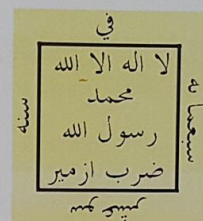 في
لا اله الا الله
محمد
رسول الله
ضرب ازمير
سنه
سبعما ئه